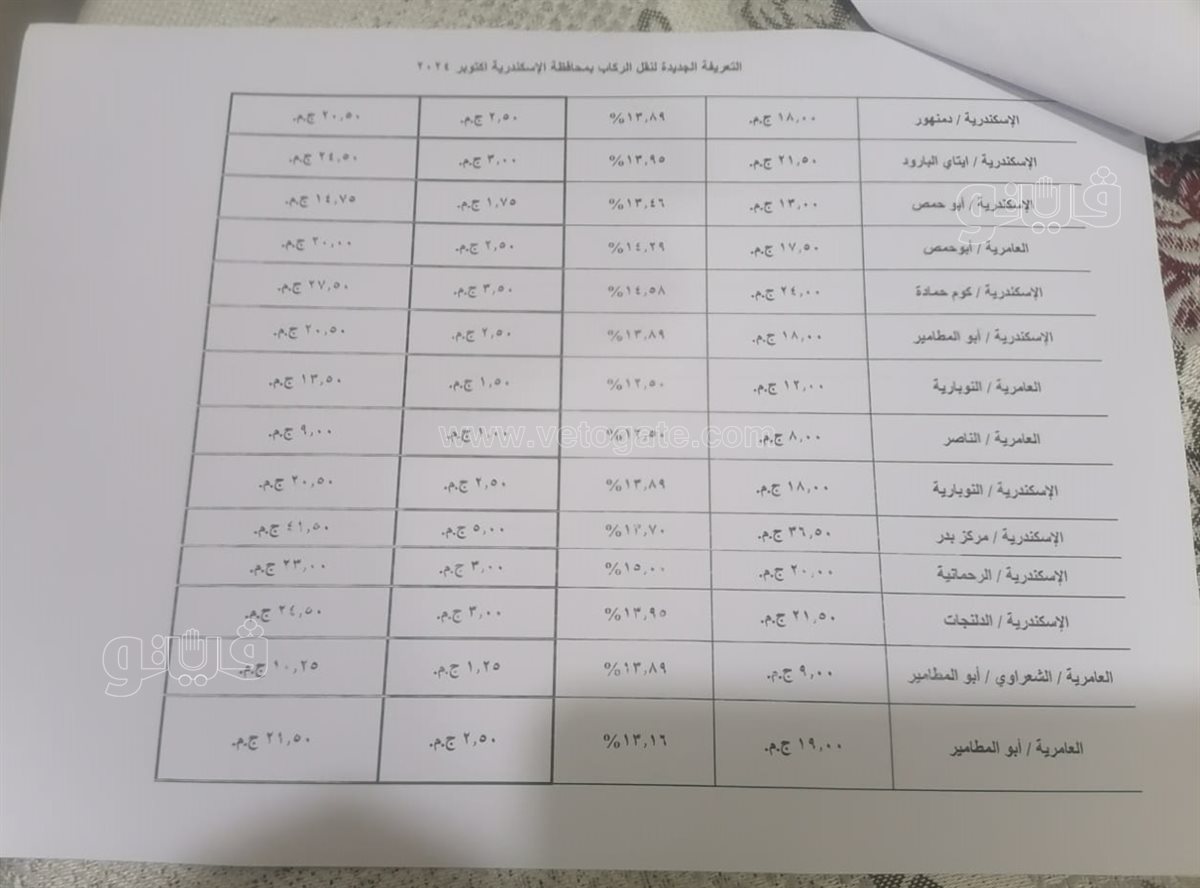 التعريفة الجديدة لنقل الركاب بمحافظة الإسكندرية اكتوبر ٢٠٢٤
الإسكندرية / دمنهور ١٨,٠٠ ج.م. ١٣,٨٩% ٢,٥٠ ج.م. ٢٠,٥٠ ج.م.
الإسكندرية / ايتاي البارود ٢١,٥٠ ج.م. ١٣,٩٥% ٣,٠٠ ج.م. ٢٤,٥٠ ج.م.
الإسكندرية / أبو حمص ١٣,٠٠ ج.م. ١٣,٤٦% ١,٧٥ ج.م. ١٤,٧٥ ج.م.
العامرية / أبوحمص ١٧,٥٠ ج.م. ١٤,٢٩% ٢,٥٠ ج.م. ٢٠,٠٠ ج.م.
الإسكندرية / كوم حمادة ٢٤,٠٠ ج.م. ١٤,٥٨% ٣,٥٠ ج.م. ٢٧,٥٠ ج.م.
الإسكندرية / أبو المطامير ١٨,٠٠ ج.م. ١٣,٨٩% ٢,٥٠ ج.م. ٢٠,٥٠ ج.م.
العامرية / النوبارية ١٢,٠٠ ج.م. ١٢,٥٠% ١,٥٠ ج.م. ١٣,٥٠ ج.م.
العامرية / الناصر ٨,٠٠ ج.م. ١٢,٥٠% ١,٠٠ ج.م. ٩,٠٠ ج.م.
الإسكندرية / النوبارية ١٨,٠٠ ج.م. ١٣,٨٩% ٢,٥٠ ج.م. ٢٠,٥٠ ج.م.
الإسكندرية / مركز بدر ٣٦,٥٠ ج.م. ١٣,٧٠% ٥,٠٠ ج.م. ٤١,٥٠ ج.م.
الإسكندرية / الرحمانية ٢٠,٠٠ ج.م. ١٥,٠٠% ٣,٠٠ ج.م. ٢٣,٠٠ ج.م.
الإسكندرية / الدلنجات ٢١,٥٠ ج.م. ١٣,٩٥% ٣,٠٠ ج.م. ٢٤,٥٠ ج.م.
العامرية / الشعراوي / أبو المطامير ٩,٠٠ ج.م. ١٣,٨٩% ١,٢٥ ج.م. ١٠,٢٥ ج.م.
العامرية / أبو المطامير ١٩,٠٠ ج.م. ١٣,١٦% ٢,٥٠ ج.م. ٢١,٥٠ ج.م.
ڤيتو
www.vetogate.com
ڤيتو